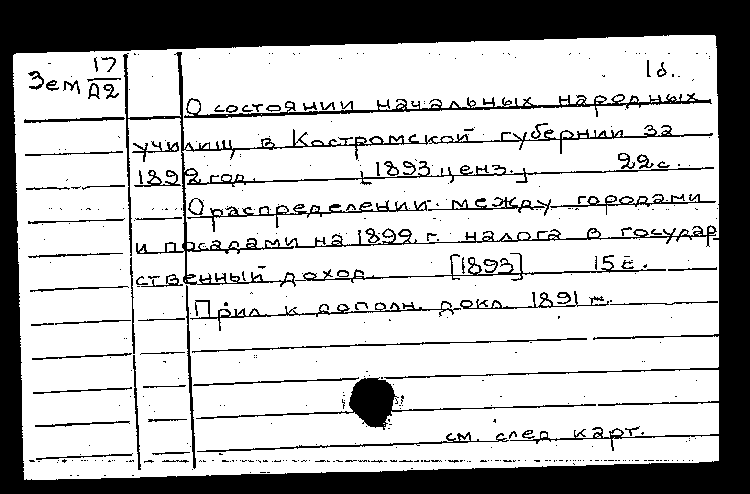 1б.
Зем 17/Д2
О состоянии начальных народных
училищ в Костромской губернии за
1892 год. [1893, ценз.] 22 с.
О распределении между городами
и посадами на 1892 г. налога в государ
ственный доход. [1893] 15 с.
Прил. к дополн. докл. 1891 г.
см. след. карт.